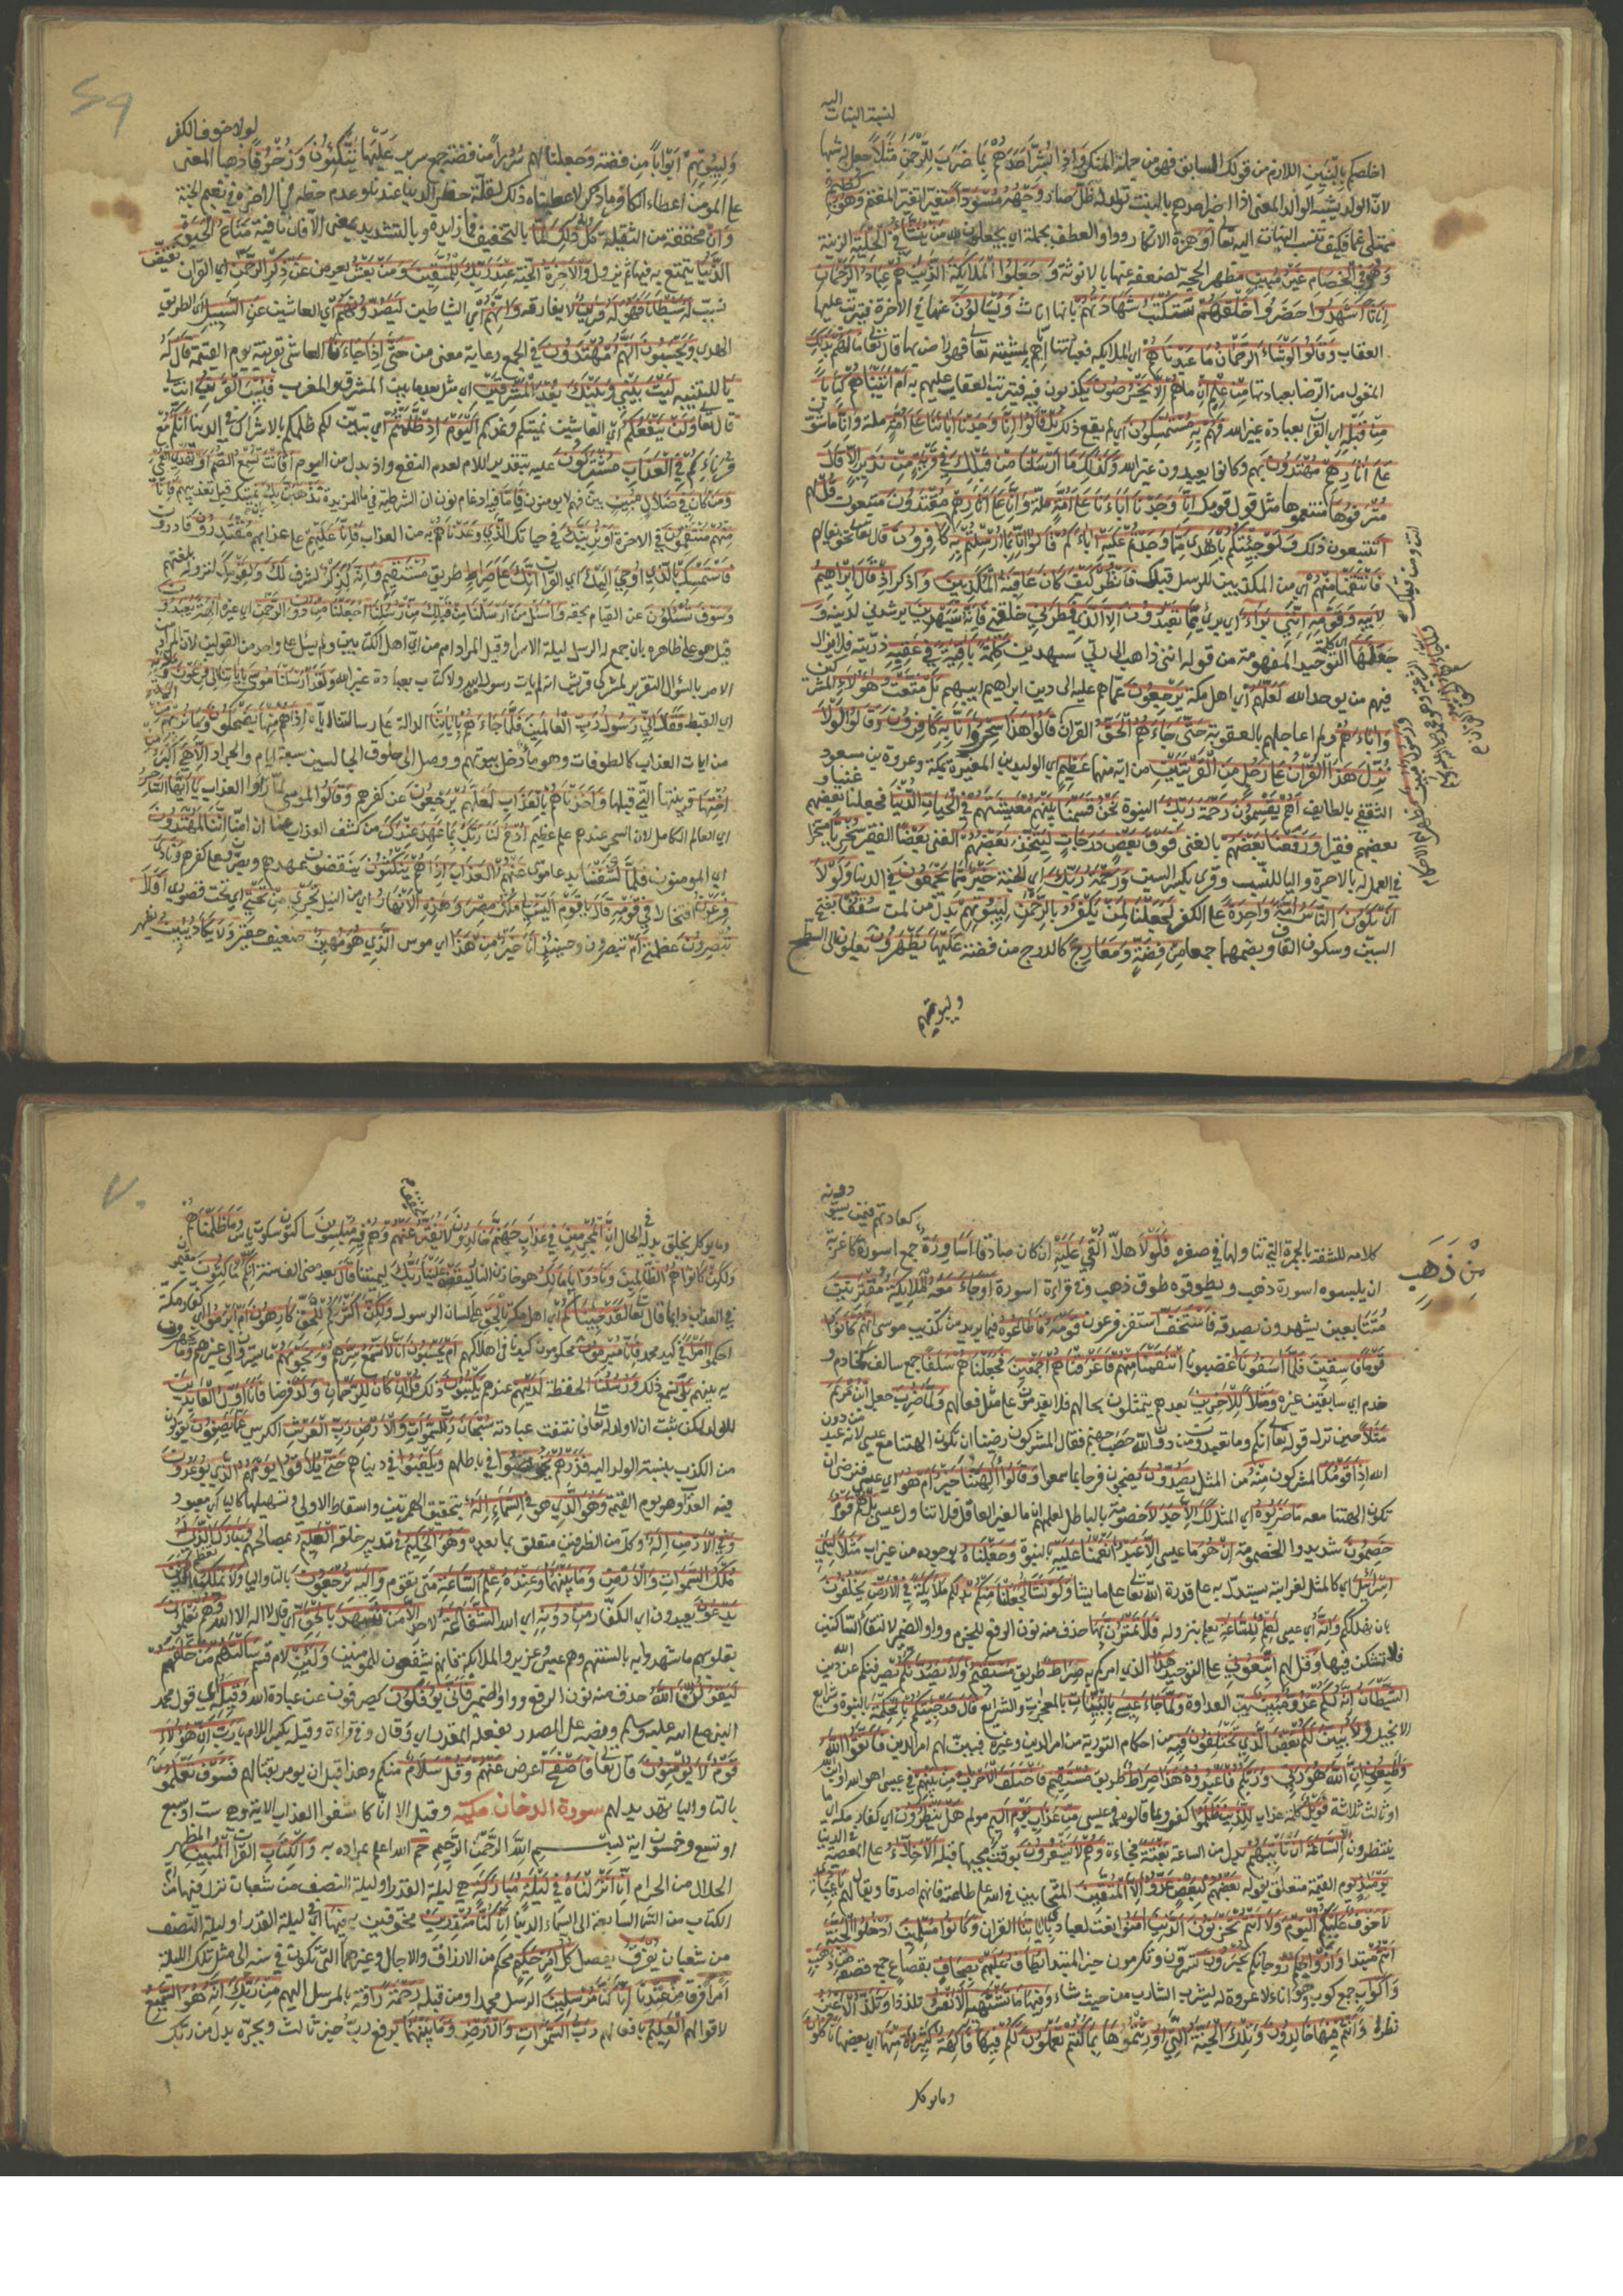 اليه
لنسبة البنات
اخلصكم بالبنين اللازم من قولك السابق فهو من جملة المنكر وَاِذَا بُشِّرَ اَحَدُهُمْ بِمَا ضَرَبَ لِلرَّحْمٰنِ مَثَلًا جعل له شبها
لان الولد يشبه الوالد المعنى اذا اخبر احدهم بالبنت تولد له ظَلَّ صار وَجْهُهُ مُسْوَدًّا متغيرا تغير المغتم وَهُوَ كَظِيمٌ
ممتلئ غما فكيف تنسب البنات اليه تعالى اَوَ همزة الانكار وواو العطف بجملة اي يجعلون لله مَنْ يُنَشَّأُ فِي الْحِلْيَةِ الزينة
وَهُوَ فِي الْخِصَامِ غَيْرُ مُبِينٍ مظهر الحجة لضعفه عنها بالانوثة وَجَعَلُوا الْمَلَائِكَةَ الَّذِينَ هُمْ عِبَادُ الرَّحْمَانِ
اِنَاثًا اَشَهِدُوا حضروا خَلْقَهُمْ سَتُكْتَبُ شَهَادَتُهُمْ بانها اناث وَيُسْأَلُونَ عنها في الاخرة فيترتب عليها
العقاب وَقَالُوا لَوْ شَاءَ الرَّحْمٰنُ مَا عَبَدْنَاهُمْ اي الملائكة فعبادتنا اياهم بمشيئته تعالى فهو راض بها قال تعالى مَا لَهُمْ بِذٰلِكَ
المقول من الرضا بعبادتها مِنْ عِلْمٍ اِنْ ما هُمْ اِلَّا يَخْرُصُونَ يكذبون فيه فيترتب العقاب عليهم به اَمْ اٰتَيْنَاهُمْ كِتَابًا
مِنْ قَبْلِهِ اي القران بعبادة غير الله فَهُمْ بِهِ مُسْتَمْسِكُونَ اي لم يقع ذلك بَلْ قَالُوا اِنَّا وَجَدْنَا اٰبَاءَنَا عَلَى اُمَّةٍ ملة وَاِنَّا ماشون
عَلَى اٰثَارِهِمْ مُهْتَدُونَ بهم وكانوا يعبدون غير الله وَكَذٰلِكَ مَا اَرْسَلْنَا مِنْ قَبْلِكَ فِي قَرْيَةٍ مِنْ نَذِيرٍ اِلَّا قَالَ
مُتْرَفُوهَا متنعموها مثل قول قومك اِنَّا وَجَدْنَا اٰبَاءَنَا عَلَى اُمَّةٍ ملة وَاِنَّا عَلَى اٰثَارِهِمْ مُقْتَدُونَ متبعون قُلْ لهم
اتتبعون ذلك وَلَوْ جِئْتُكُمْ بِاَهْدَى مِمَّا وَجَدْتُمْ عَلَيْهِ اٰبَاءَكُمْ قَالُوا اِنَّا بِمَا اُرْسِلْتُمْ بِهِ كَافِرُونَ قال تعالى تخويفا لهم
فَانْتَقَمْنَا مِنْهُمْ اي من المكذبين للرسل قبلك فَانْظُرْ كَيْفَ كَانَ عَاقِبَةُ الْمُكَذِّبِينَ وَ اذكر اِذْ قَالَ اِبْرَاهِيمُ
لِاَبِيهِ وَقَوْمِهِ اِنَّنِي بَرَاءٌ اي بريء مِمَّا تَعْبُدُونَ اِلَّا الَّذِي فَطَرَنِي خلقني فَاِنَّهُ سَيَهْدِينِ يرشدني لدينه وَ
جَعَلَهَا اي كلمة التوحيد المفهومة من قوله انني ذاهب الى ربي سيهدين كَلِمَةً بَاقِيَةً فِي عَقِبِهِ ذريته فلا يزال
فيهم من يوحد الله لَعَلَّهُمْ اي اهل مكة يَرْجِعُونَ عما هم عليه الى دين ابراهيم ابيهم بَلْ مَتَّعْتُ هٰؤُلَاءِ المشركين
وَاٰبَاءَهُمْ ولم اعاجلهم بالعقوبة حَتَّى جَاءَهُمُ الْحَقُّ القران قَالُوا هٰذَا سِحْرٌ وَاِنَّا بِهِ كَافِرُونَ وَقَالُوا لَوْلَا
نُزِّلَ هٰذَا الْقُرْاٰنُ عَلَى رَجُلٍ مِنَ الْقَرْيَتَيْنِ من اية منهما عَظِيمٍ اي الوليد بن المغيرة بمكة وعروة بن مسعود
الثقفي بالطايف اَهُمْ يَقْسِمُونَ رَحْمَةَ رَبِّكَ النبوة نَحْنُ قَسَمْنَا بَيْنَهُمْ مَعِيشَتَهُمْ فِي الْحَيٰوةِ الدُّنْيَا فجعلنا بعضهم غنيا و
بعضهم فقيرا وَرَفَعْنَا بَعْضَهُمْ بالغنى فَوْقَ بَعْضٍ دَرَجَاتٍ لِيَتَّخِذَ بَعْضُهُمْ الغني بَعْضًا الفقير سُخْرِيًّا مسخرا
في العمل له بالاجرة واليا للنسب وقرى بكسر السين وَرَحْمَةُ رَبِّكَ اي الجنة خَيْرٌ مِمَّا يَجْمَعُونَ في الدنيا وَلَوْلَا
اَنْ يَكُونَ النَّاسُ اُمَّةً وَاحِدَةً على الكفر لَجَعَلْنَا لِمَنْ يَكْفُرُ بِالرَّحْمٰنِ لِبُيُوتِهِمْ بدل من لمن سُقُفًا بفتح
السين وسكون القاف وبضمهما جمعا مِنْ فِضَّةٍ وَمَعَارِجَ كالدرج من فضة عَلَيْهَا يَظْهَرُونَ يعلون الى السطح
ولبيوتهم
٦٩
لولا خوف الكفر
وَلِبُيُوتِهِمْ اَبْوَابًا من فضة وَ جعلنا لهم سُرُرًا من فضة جمع سرير عَلَيْهَا يَتَّكِئُونَ وَزُخْرُفًا ذهبا المعنى
على المومن اعطاء الكافر ما ذكر لاعطيناه ذلك لقلة حظر الدنيا عندنا وعدم حظه في الاخرة في نعيم الجنة
وَاِنْ مخففة من الثقيلة كُلُّ ذٰلِكَ لَمَا بالتخفيف فما زايدة وبالتشديد بمعنى الا فان نافية مَتَاعُ الْحَيٰوةِ
الدُّنْيَا يتمتع به فيها ثم يزول وَالْاٰخِرَةُ الجنة عِنْدَ رَبِّكَ لِلْمُتَّقِينَ وَمَنْ يَعْشُ يعرض عَنْ ذِكْرِ الرَّحْمٰنِ اي القران نُقَيِّضْ
نسبب لَهُ شَيْطَانًا فَهُوَ لَهُ قَرِينٌ لا يفارقه وَاِنَّهُمْ اي الشياطين لَيَصُدُّونَهُمْ اي العاشين عَنِ السَّبِيلِ اي طريق
الهدى وَيَحْسَبُونَ اَنَّهُمْ مُهْتَدُونَ في الجمع رعاية معنى من حَتَّى اِذَا جَاءَنَا العاشى بقرينه يوم القيمة قَالَ له
يَا للتنبيه لَيْتَ بَيْنِي وَبَيْنَكَ بُعْدَ الْمَشْرِقَيْنِ اي مثل بعد ما بين المشرق والمغرب فَبِئْسَ الْقَرِينُ انت لي
قال تعالى وَلَنْ يَنْفَعَكُمْ اي العاشين تمنيكم وندمكم الْيَوْمَ اِذْ ظَلَمْتُمْ اي تبين لكم ظلمكم بالاشراك في الدنيا اَنَّكُمْ مع
قرنائكم فِي الْعَذَابِ مُشْتَرِكُونَ علة بتقدير اللام لعدم النفع واذ بدل من اليوم اَفَاَنْتَ تُسْمِعُ الصُّمَّ اَوْ تَهْدِي الْعُمْيَ
وَمَنْ كَانَ فِي ضَلَالٍ مُبِينٍ بين فهم لا يومنون فَاِمَّا فيه ادغام نون ان الشرطية في ما المزيدة نَذْهَبَنَّ بِكَ نميتك قبل تعذيبهم فَاِنَّا
مِنْهُمْ مُنْتَقِمُونَ في الاخرة اَوْ نُرِيَنَّكَ في حياتك الَّذِي وَعَدْنَاهُمْ به من العذاب فَاِنَّا عَلَيْهِمْ على عذابهم مُقْتَدِرُونَ قادرون
فَاسْتَمْسِكْ بِالَّذِي اُوحِيَ اِلَيْكَ اي القران اِنَّكَ عَلَى صِرَاطٍ طريق مُسْتَقِيمٍ وَاِنَّهُ لَذِكْرٌ لشرف لَكَ وَلِقَوْمِكَ لنزوله بلغتهم
وَسَوْفَ تُسْأَلُونَ عن القيام بحقه وَاسْأَلْ مَنْ اَرْسَلْنَا مِنْ قَبْلِكَ مِنْ رُسُلِنَا اَجَعَلْنَا مِنْ دُونِ الرَّحْمٰنِ اي غيره اٰلِهَةً يُعْبَدُونَ
قيل هو على ظاهره بان جمع له الرسل ليلة الاسرا وقيل المراد امم من اي اهل الكتابين ولم يسئل على واحد من القولين لان المراد من
الامر بالسؤال التقرير لمشركي قريش انه لم يات رسول من الله ولا كتاب بعبادة غير الله وَلَقَدْ اَرْسَلْنَا مُوسَى بِاٰيَاتِنَا اِلَى فِرْعَوْنَ وَمَلَئِهِ
اي القبط فَقَالَ اِنِّي رَسُولُ رَبِّ الْعَالَمِينَ فَلَمَّا جَاءَهُمْ بِاٰيَاتِنَا الدالة على رسالته اِذَا هُمْ مِنْهَا يَضْحَكُونَ وَمَا نُرِيهِمْ مِنْ اٰيَةٍ
من ايات العذاب كالطوفان وهو ما دخل بيوتهم ووصل الى حلوق الجالسين سبعة ايام والجراد اِلَّا هِيَ اَكْبَرُ مِنْ
اُخْتِهَا قرينتها التي قبلها وَاَخَذْنَاهُمْ بِالْعَذَابِ لَعَلَّهُمْ يَرْجِعُونَ عن كفرهم وَقَالُوا لموسى لما راوا العذاب يَا اَيُّهَا السَّاحِرُ
اي العالم الكامل لان السحر عندهم علم عظيم اُدْعُ لَنَا رَبَّكَ بِمَا عَهِدَ عِنْدَكَ من كشف العذاب عنا ان امنا اِنَّنَا لَمُهْتَدُونَ
اي مومنون فَلَمَّا كَشَفْنَا بدعا موسى عَنْهُمُ الْعَذَابَ اِذَا هُمْ يَنْكُثُونَ ينقضون عهدهم ويصرون على كفرهم وَنَادَى
فِرْعَوْنُ افتخارا فِي قَوْمِهِ قَالَ يَا قَوْمِ اَلَيْسَ لِي مُلْكُ مِصْرَ وَهٰذِهِ الْاَنْهَارُ اي من النيل تَجْرِي مِنْ تَحْتِي اي تحت قصوري اَفَلَا
تُبْصِرُونَ عظمتي اَمْ تبصرون وحينئذ اَنَا خَيْرٌ مِنْ هٰذَا اي موسى الَّذِي هُوَ مَهِينٌ ضعيف حقير وَلَا يَكَادُ يُبِينُ يظهر
كلامه للثغة بالجمرة التي تناولها في صغره فَلَوْلَا هلا اُلْقِيَ عَلَيْهِ ان كان صادقا اَسَاوِرَةٌ جمع اسورة كاغربة
مِنْ ذَهَبٍ
ان يلبسوه اسورة ذهب ويطوقوه طوق ذهب وفي قراءة اسورة اَوْ جَاءَ مَعَهُ الْمَلَائِكَةُ مُقْتَرِنِينَ
متتابعين يشهدون بصدقه فَاسْتَخَفَّ استفز فرعون قَوْمَهُ فَاَطَاعُوهُ فيما يريد من تكذيب موسى اِنَّهُمْ كَانُوا
قَوْمًا فَاسِقِينَ فَلَمَّا اٰسَفُونَا اغضبونا انْتَقَمْنَا مِنْهُمْ فَاَغْرَقْنَاهُمْ اَجْمَعِينَ فَجَعَلْنَاهُمْ سَلَفًا جمع سالف كخادم و
خدم اي سابقين عبرة وَمَثَلًا لِلْاٰخِرِينَ بعدهم يتمثلون بحالهم فلا يقدمون على مثل فعالهم وَلَمَّا ضُرِبَ جعل ابْنُ مَرْيَمَ
مَثَلًا حين نزل قوله تعالى انكم وما تعبدون من دون الله حصب جهنم فقال المشركون رضينا ان تكون الهتنا مع عيسى لانه عبد من دون
الله اِذَا قَوْمُكَ المشركون مِنْهُ من المثل يَصِدُّونَ يضجون فرحا بما سمعوا وَقَالُوا ءَاٰلِهَتُنَا خَيْرٌ اَمْ هُوَ اي عيسى فنرضى ان
تكون الهتنا معه مَا ضَرَبُوهُ اي المثل لَكَ اِلَّا جَدَلًا خصومة بالباطل لعلمهم ان ما لغير العاقل فلا يتناول عيسى بَلْ هُمْ قَوْمٌ
خَصِمُونَ شديدوا الخصومة اِنْ هُوَ ما عيسى اِلَّا عَبْدٌ اَنْعَمْنَا عَلَيْهِ بالنبوة وَجَعَلْنَاهُ بوجوده من غير اب مَثَلًا لِبَنِي
اِسْرَائِيلَ اي كالمثل لغرابته يستدل به على قدرة الله تعالى على ما يشا وَلَوْ نَشَاءُ لَجَعَلْنَا مِنْكُمْ بدلكم مَلَائِكَةً فِي الْاَرْضِ يَخْلُفُونَ
بان نهلككم وَاِنَّهُ اي عيسى لَعِلْمٌ لِلسَّاعَةِ يعلم بنزوله فَلَا تَمْتَرُنَّ بِهَا حذف منه نون الرفع للجزم وواو الضمير لالتقا الساكنين
فلا تشكن فيها وَ قل لهم اتَّبِعُونِ على التوحيد هٰذَا الذي امركم به صِرَاطٌ طريق مُسْتَقِيمٌ وَلَا يَصُدَّنَّكُمْ يصرفنكم عن دين الله
الشَّيْطَانُ اِنَّهُ لَكُمْ عَدُوٌّ مُبِينٌ بين العداوة وَلَمَّا جَاءَ عِيسَى بِالْبَيِّنَاتِ بالمعجزات والشرايع قَالَ قَدْ جِئْتُكُمْ بِالْحِكْمَةِ بالنبوة وشرايع
الانجيل وَلِاُبَيِّنَ لَكُمْ بَعْضَ الَّذِي تَخْتَلِفُونَ فِيهِ من احكام التورية من امر الدين وغيره فبين لهم امر الدين فَاتَّقُوا اللهَ
وَاَطِيعُونِ اِنَّ اللهَ هُوَ رَبِّي وَرَبُّكُمْ فَاعْبُدُوهُ هٰذَا صِرَاطٌ طريق مُسْتَقِيمٌ فَاخْتَلَفَ الْاَحْزَابُ مِنْ بَيْنِهِمْ في عيسى اهو الله او ابن
او ثالث ثلاثة فَوَيْلٌ كلمة عذاب لِلَّذِينَ ظَلَمُوا كفروا بما قالوه في عيسى مِنْ عَذَابِ يَوْمٍ اَلِيمٍ مولم هَلْ يَنْظُرُونَ اي كفار مكة اي ما
ينتظرون اِلَّا السَّاعَةَ اَنْ تَأْتِيَهُمْ بدل من الساعة بَغْتَةً فجاءة وَهُمْ لَا يَشْعُرُونَ بوقت مجيها قبله الْاَخِلَّاءُ على المعصية في الدنيا
يَوْمَئِذٍ يوم القيمة متعلق بقوله بَعْضُهُمْ لِبَعْضٍ عَدُوٌّ اِلَّا الْمُتَّقِينَ المتحابين في الله على طاعته فانهم اصدقا ويقال لهم يَا عِبَادِ
لَا خَوْفٌ عَلَيْكُمُ الْيَوْمَ وَلَا اَنْتُمْ تَحْزَنُونَ الَّذِينَ اٰمَنُوا نعت لعبادي بِاٰيَاتِنَا القران وَكَانُوا مُسْلِمِينَ اُدْخُلُوا الْجَنَّةَ
اَنْتُمْ مبتدا وَاَزْوَاجُكُمْ زوجاتكم تُحْبَرُونَ تسرون وتكرمون خبر المبتدا يُطَافُ عَلَيْهِمْ بِصِحَافٍ بقصاع جمع قصعة مِنْ ذَهَبٍ
وَاَكْوَابٍ جمع كوب وهو اناء لا عروة له ليشرب الشارب من حيث شاء وَفِيهَا مَا تَشْتَهِيهِ الْاَنْفُسُ تلذذا وَتَلَذُّ الْاَعْيُنُ
نظرا وَاَنْتُمْ فِيهَا خَالِدُونَ وَتِلْكَ الْجَنَّةُ الَّتِي اُورِثْتُمُوهَا بِمَا كُنْتُمْ تَعْمَلُونَ لَكُمْ فِيهَا فَاكِهَةٌ كَثِيرَةٌ مِنْهَا اي بعضها تَأْكُلُونَ
وما يوكل
٧٠
وما يوكل يخلق بدله في الحال اِنَّ الْمُجْرِمِينَ فِي عَذَابِ جَهَنَّمَ خَالِدُونَ لَا يُفَتَّرُ عَنْهُمْ وَهُمْ فِيهِ مُبْلِسُونَ ساكتون سكوت ياس وَمَا ظَلَمْنَاهُمْ
وَلٰكِنْ كَانُوا هُمُ الظَّالِمِينَ وَنَادَوْا يَا مَالِكُ هو خازن النار لِيَقْضِ عَلَيْنَا رَبُّكَ ليمتنا قَالَ بعد مضي الف سنة اِنَّكُمْ مَاكِثُونَ مقيمون
في العذاب دايما قال تعالى لَقَدْ جِئْنَاكُمْ اي اهل مكة بِالْحَقِّ على لسان الرسول وَلٰكِنَّ اَكْثَرَكُمْ لِلْحَقِّ كَارِهُونَ اَمْ اَبْرَمُوا اي كفار مكة
احكموا اَمْرًا في كيد محمد فَاِنَّا مُبْرِمُونَ محكمون كيدنا في اهلاكهم اَمْ يَحْسَبُونَ اَنَّا لَا نَسْمَعُ سِرَّهُمْ وَنَجْوَاهُمْ ما يسرون الى غيرهم وما يجهرون
به بينهم بَلَى نسمع ذلك وَرُسُلُنَا الحفظة لَدَيْهِمْ عندهم يَكْتُبُونَ ذلك قُلْ اِنْ كَانَ لِلرَّحْمٰنِ وَلَدٌ فرضا فَاَنَا اَوَّلُ الْعَابِدِينَ
للولد لكن ثبت ان لا ولد له تعالى فانتفت عبادته سُبْحَانَ رَبِّ السَّمٰوَاتِ وَالْاَرْضِ رَبِّ الْعَرْشِ الكرسي عَمَّا يَصِفُونَ يقولون
من الكذب بنسبة الولد اليه فَذَرْهُمْ يَخُوضُوا في باطلهم وَيَلْعَبُوا في دنياهم حَتَّى يُلَاقُوا يَوْمَهُمُ الَّذِي يُوعَدُونَ
فيه العذاب وهو يوم القيمة وَهُوَ الَّذِي هو فِي السَّمَاءِ اِلٰهٌ بتحقيق الهمزتين واسقاط الاولى وتسهيلها كاليا اي معبود
وَفِي الْاَرْضِ اِلٰهٌ وكل من الظرفين متعلق بما بعده وَهُوَ الْحَكِيمُ في تدبير خلقه الْعَلِيمُ بمصالحهم وَتَبَارَكَ الَّذِي لَهُ
مُلْكُ السَّمٰوَاتِ وَالْاَرْضِ وَمَا بَيْنَهُمَا وَعِنْدَهُ عِلْمُ السَّاعَةِ متى تقوم وَاِلَيْهِ تُرْجَعُونَ بالتا واليا وَلَا يَمْلِكُ الَّذِينَ
يَدْعُونَ يعبدون اي الكفار مِنْ دُونِهِ اي الله الشَّفَاعَةَ لاحد اِلَّا مَنْ شَهِدَ بِالْحَقِّ اي قال لا اله الا الله وَهُمْ يَعْلَمُونَ
بقلوبهم ما شهدوا به بالسنتهم وهم عيسى وعزير والملائكة فانهم يشفعون للمومنين وَلَئِنْ لام قسم سَأَلْتَهُمْ مَنْ خَلَقَهُمْ
لَيَقُولُنَّ اللهُ حذف منه نون الرفع وواو الضمير فَاَنَّى يُؤْفَكُونَ يصرفون عن عبادة الله وَقِيلِهِ اي قول محمد
النبي صلى الله عليه وسلم ونصبه على المصدر بفعله المقدر اي وقال وفي قراءة وقيله بكسر اللام يَا رَبِّ اِنَّ هٰؤُلَاءِ
قَوْمٌ لَا يُؤْمِنُونَ قال تعالى فَاصْفَحْ اعرض عَنْهُمْ وَقُلْ سَلَامٌ منكم وهذا قبل ان يومر بقتالهم فَسَوْفَ تَعْلَمُونَ
بالتا واليا تهديد لهم سورة الدخان مكية وقيل الا انا كاشفوا العذاب الاية وهي ست او سبع
او تسع وخمسون اية بِسْمِ اللهِ الرَّحْمٰنِ الرَّحِيمِ حم الله اعلم بمراده به وَالْكِتَابِ القران الْمُبِينِ المظهر
الحلال من الحرام اِنَّا اَنْزَلْنَاهُ فِي لَيْلَةٍ مُبَارَكَةٍ هي ليلة القدر او ليلة النصف من شعبان نزل فيها ام
الكتاب من السما السابعة الى السماء الدنيا اِنَّا كُنَّا مُنْذِرِينَ مخوفين به فِيهَا اي ليلة القدر او ليلة النصف
من شعبان يُفْرَقُ يفصل كُلُّ اَمْرٍ حَكِيمٍ محكم من الارزاق والاجال وغيرهما التي تكون في سنة الى مثل تلك الليلة
اَمْرًا فرقا مِنْ عِنْدِنَا اِنَّا كُنَّا مُرْسِلِينَ الرسل محمدا ومن قبله رَحْمَةً رافة بالمرسل اليهم مِنْ رَبِّكَ اِنَّهُ هُوَ السَّمِيعُ
لاقوالهم الْعَلِيمُ بافعالهم رَبِّ السَّمٰوَاتِ وَالْاَرْضِ وَمَا بَيْنَهُمَا برفع رب خبر ثالث وبجره بدل من ربك